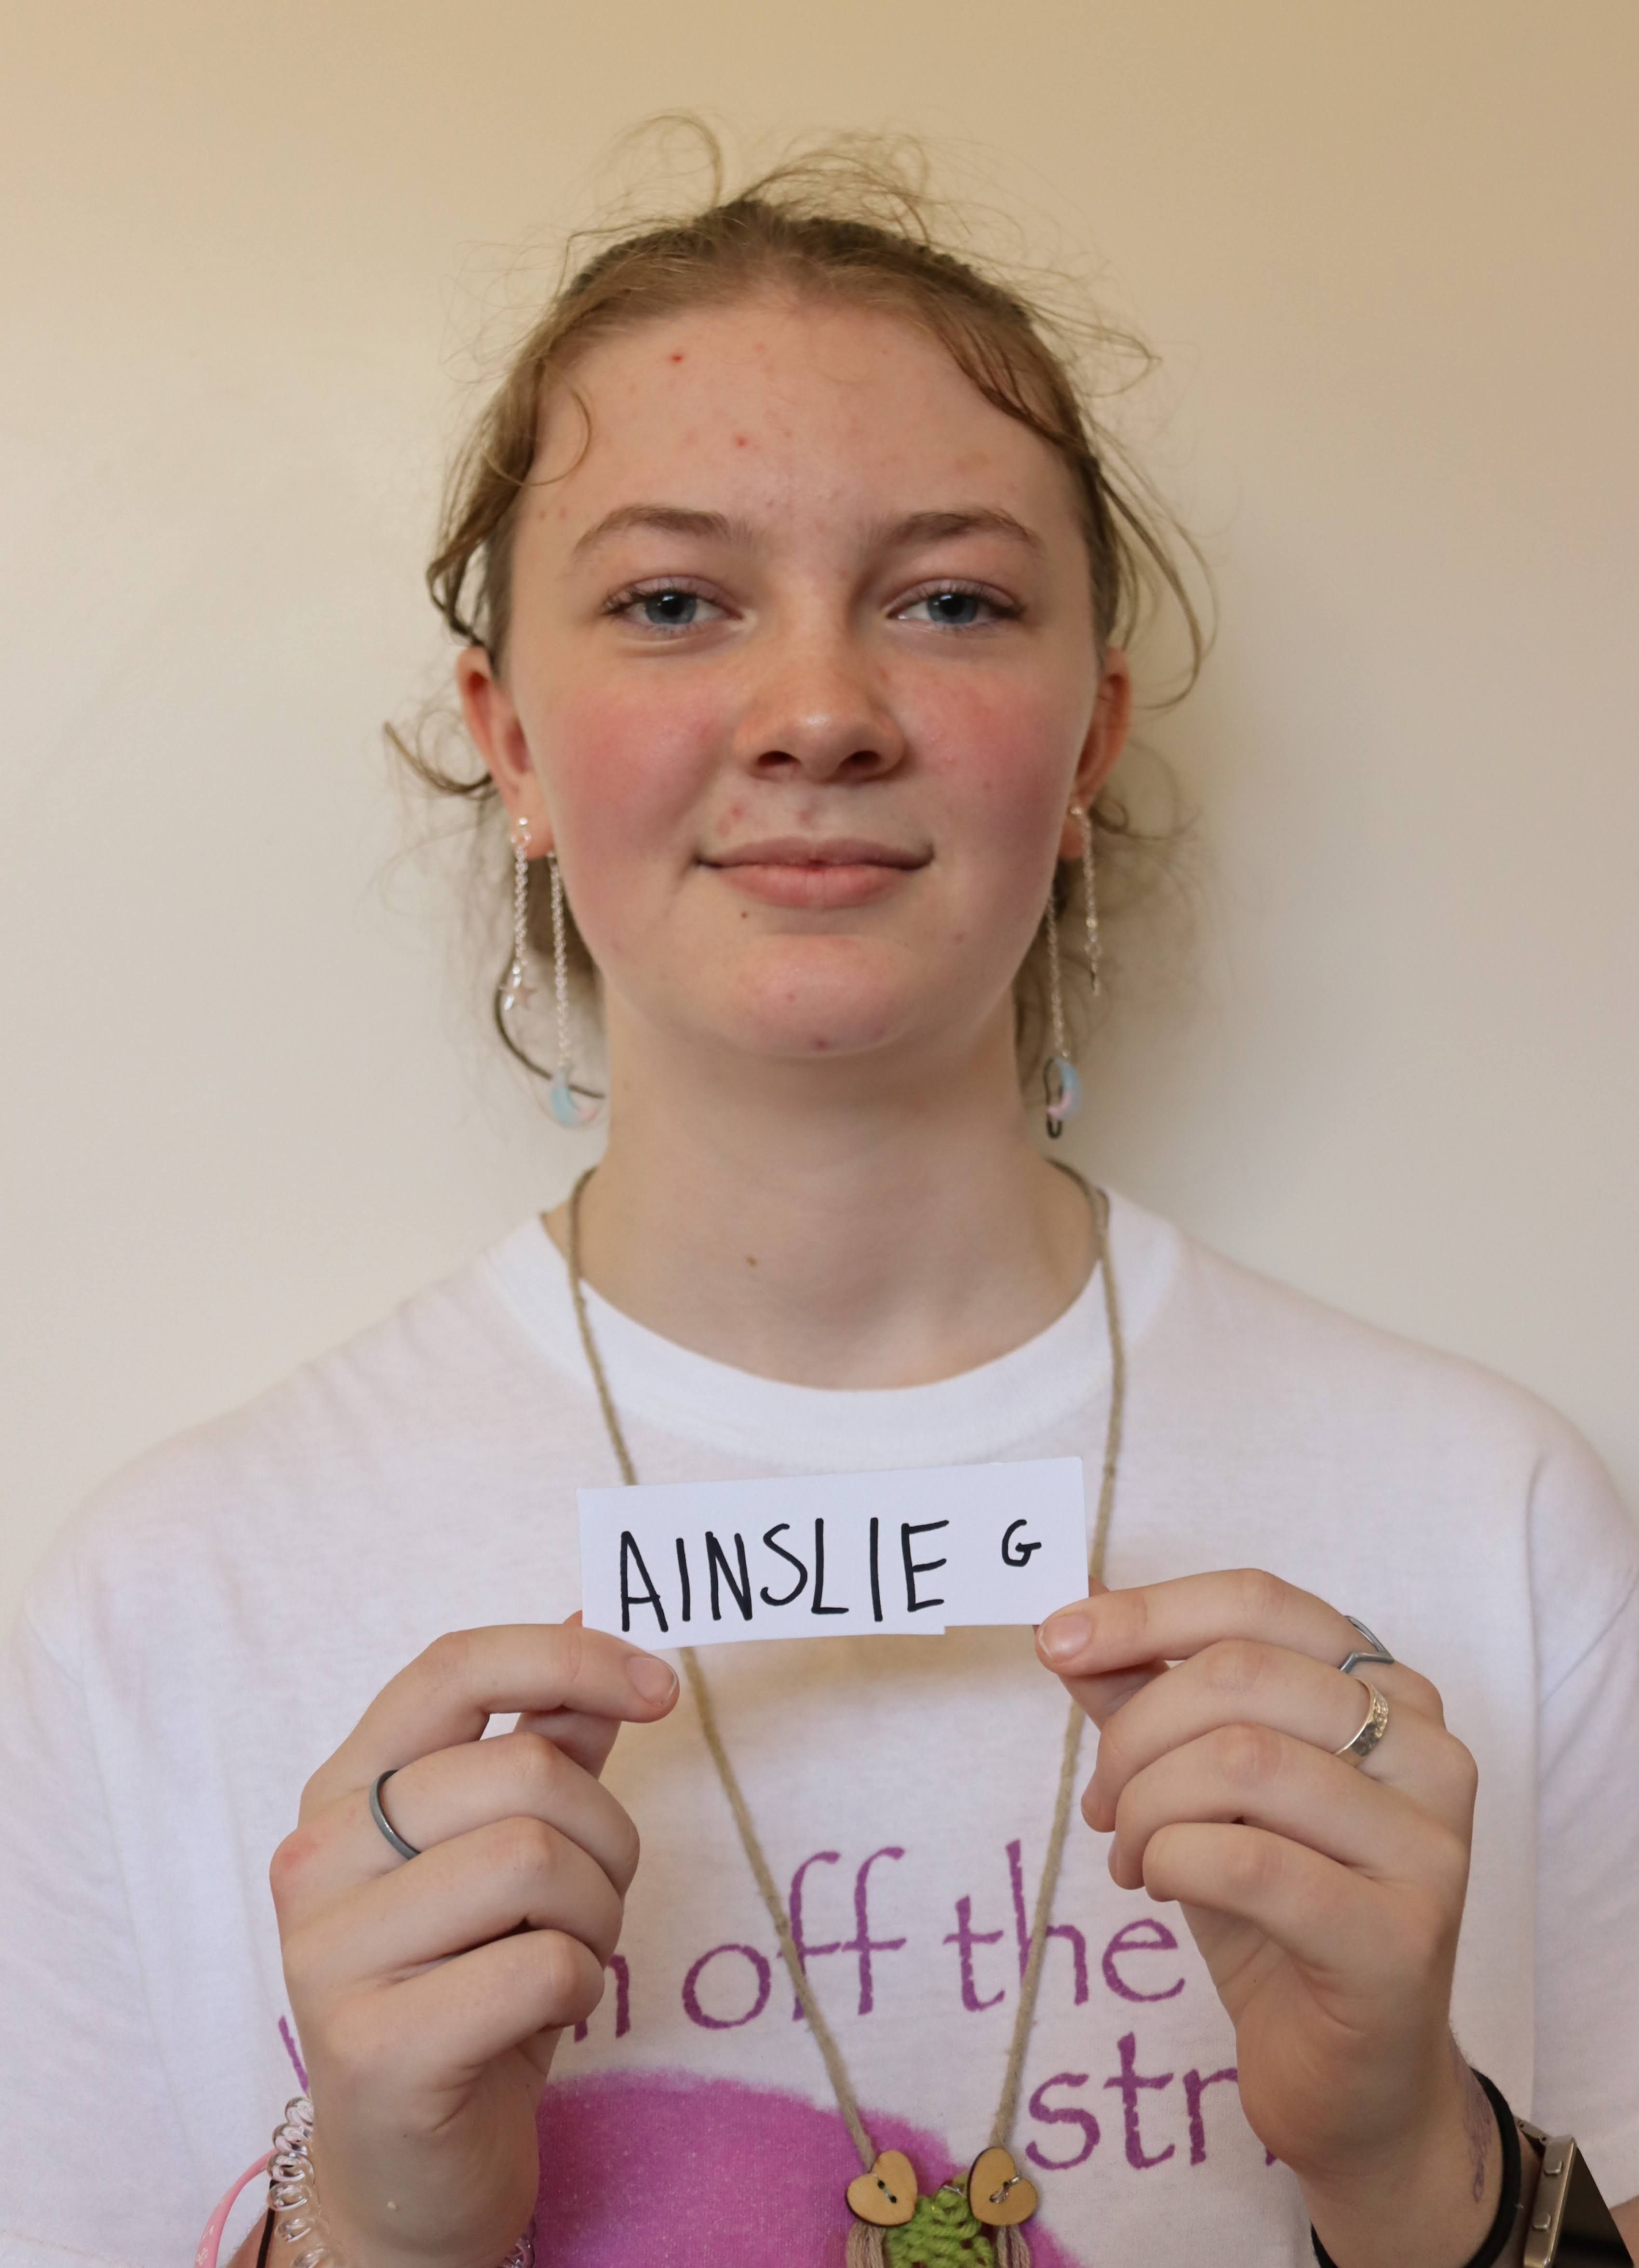 AINSLIE G
off the
str